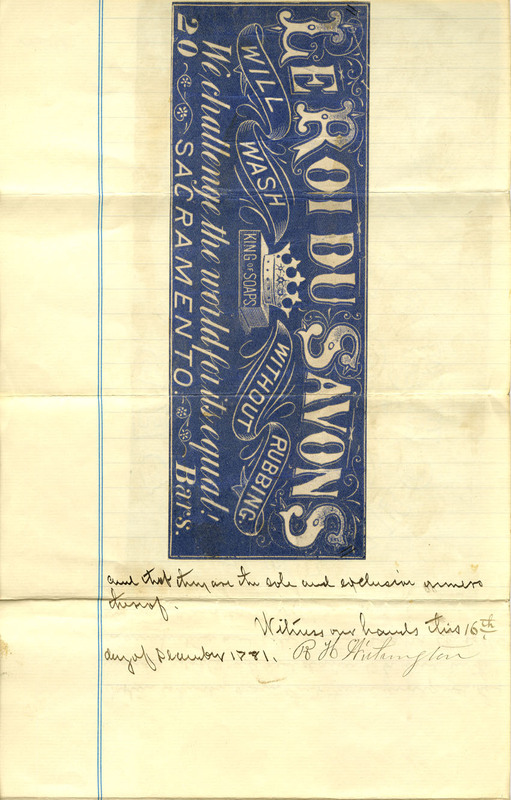 LE ROI DU SAVONS
WILL WASH WITHOUT RUBBING.
KING OF SOAPS
We challenge the world for its equal.
20 SACRAMENTO. Bars.
and that they are the sole and exclusive owners
thereof.
Witness our hands this 16th
day of December 1881. R H Withington